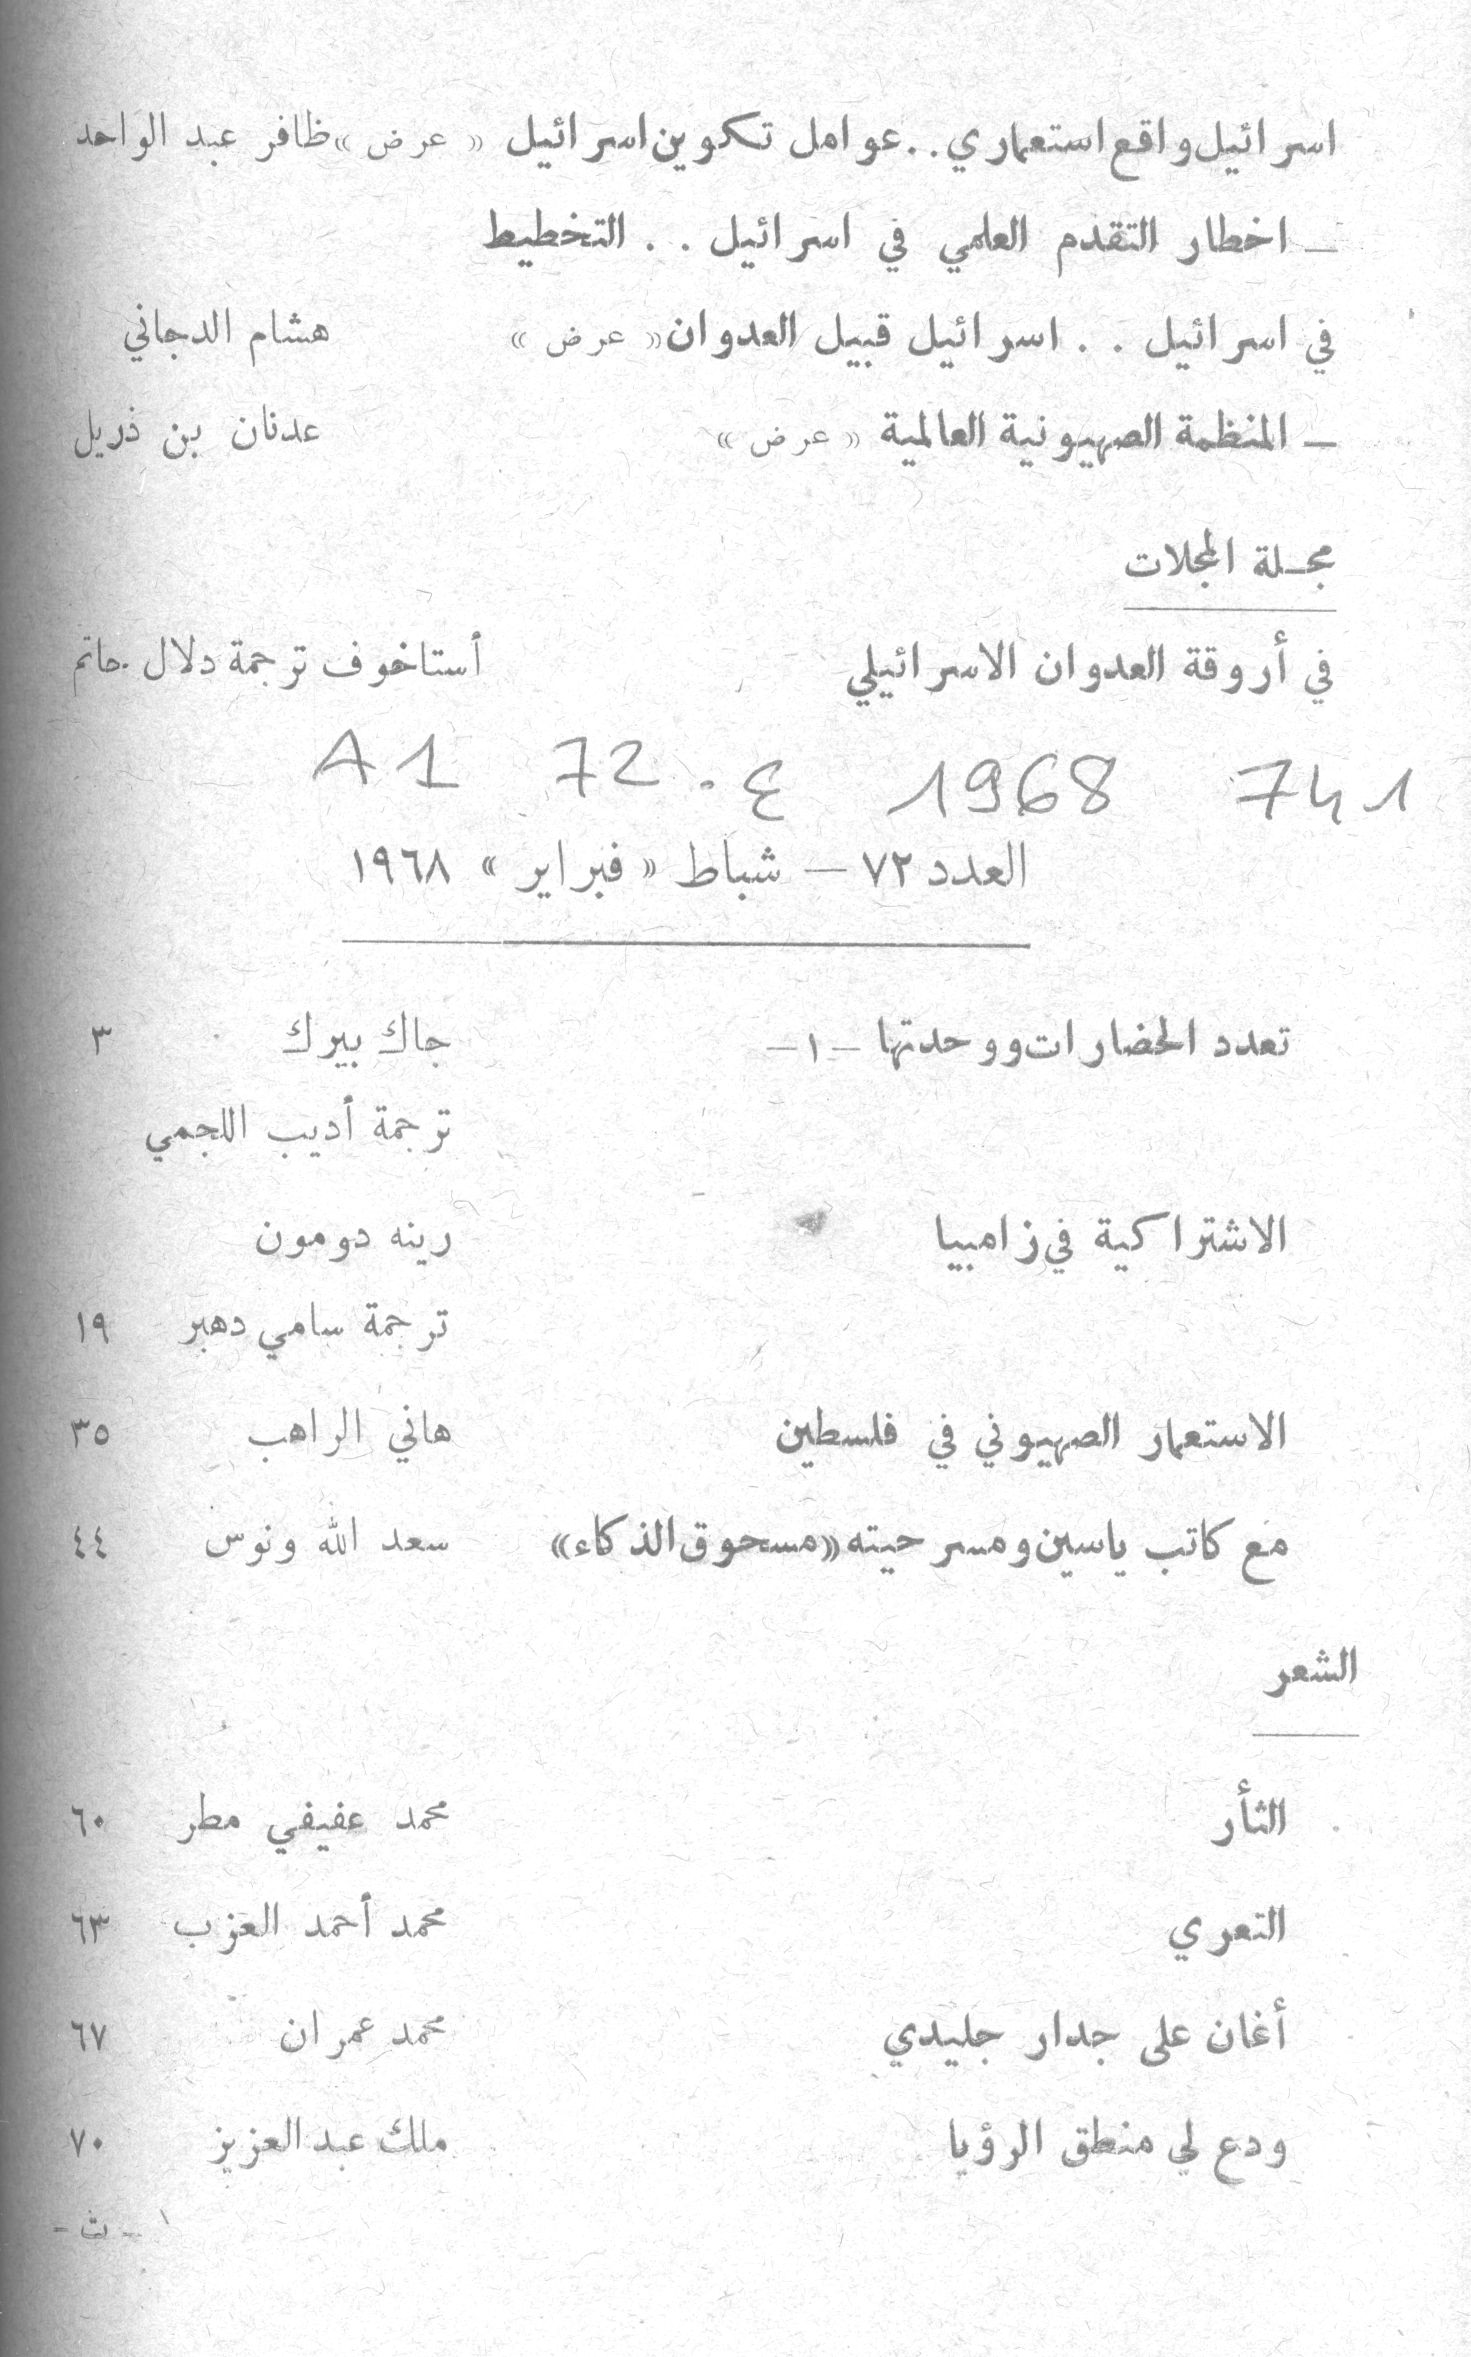 اسرائيل واقع استعماري . . عوامل تكوين اسرائيل « عرض » ظافر عبد الواحد
ــ اخطار التقدم العلمي في اسرائيل . . التخطيط
في اسرائيل . . اسرائيل قبيل العدوان « عرض » هشام الدجاني
ــ المنظمة الصهيونية العالمية « عرض » عدنان بن ذريل
مجـلة المجلات
في أروقة العدوان الاسرائيلي أستاخوف ترجمة دلال حاتم
A1 72 . ع 1968 741
العدد ٧٢ – شباط « فبراير » ١٩٦٨
تعدد الحضارات ووحدتها – ١ – جاك بيرك ٣
ترجمة أديب اللجمي
الاشتراكية في زامبيا رينه دومون
ترجمة سامي دهبر ١٩
الاستعمار الصهيوني في فلسطين هاني الراهب ٣٥
مع كاتب ياسين ومسرحيته «مسحوق الذكاء» سعد الله ونوس ٤٤
الشعر
الثأر محمد عفيفي مطر ٦٠
التعري محمد أحمد العزب ٦٣
أغان على جدار جليدي محمد عمران ٦٧
ودع لي منطق الرؤيا ملك عبد العزيز ٧٠
- ث -